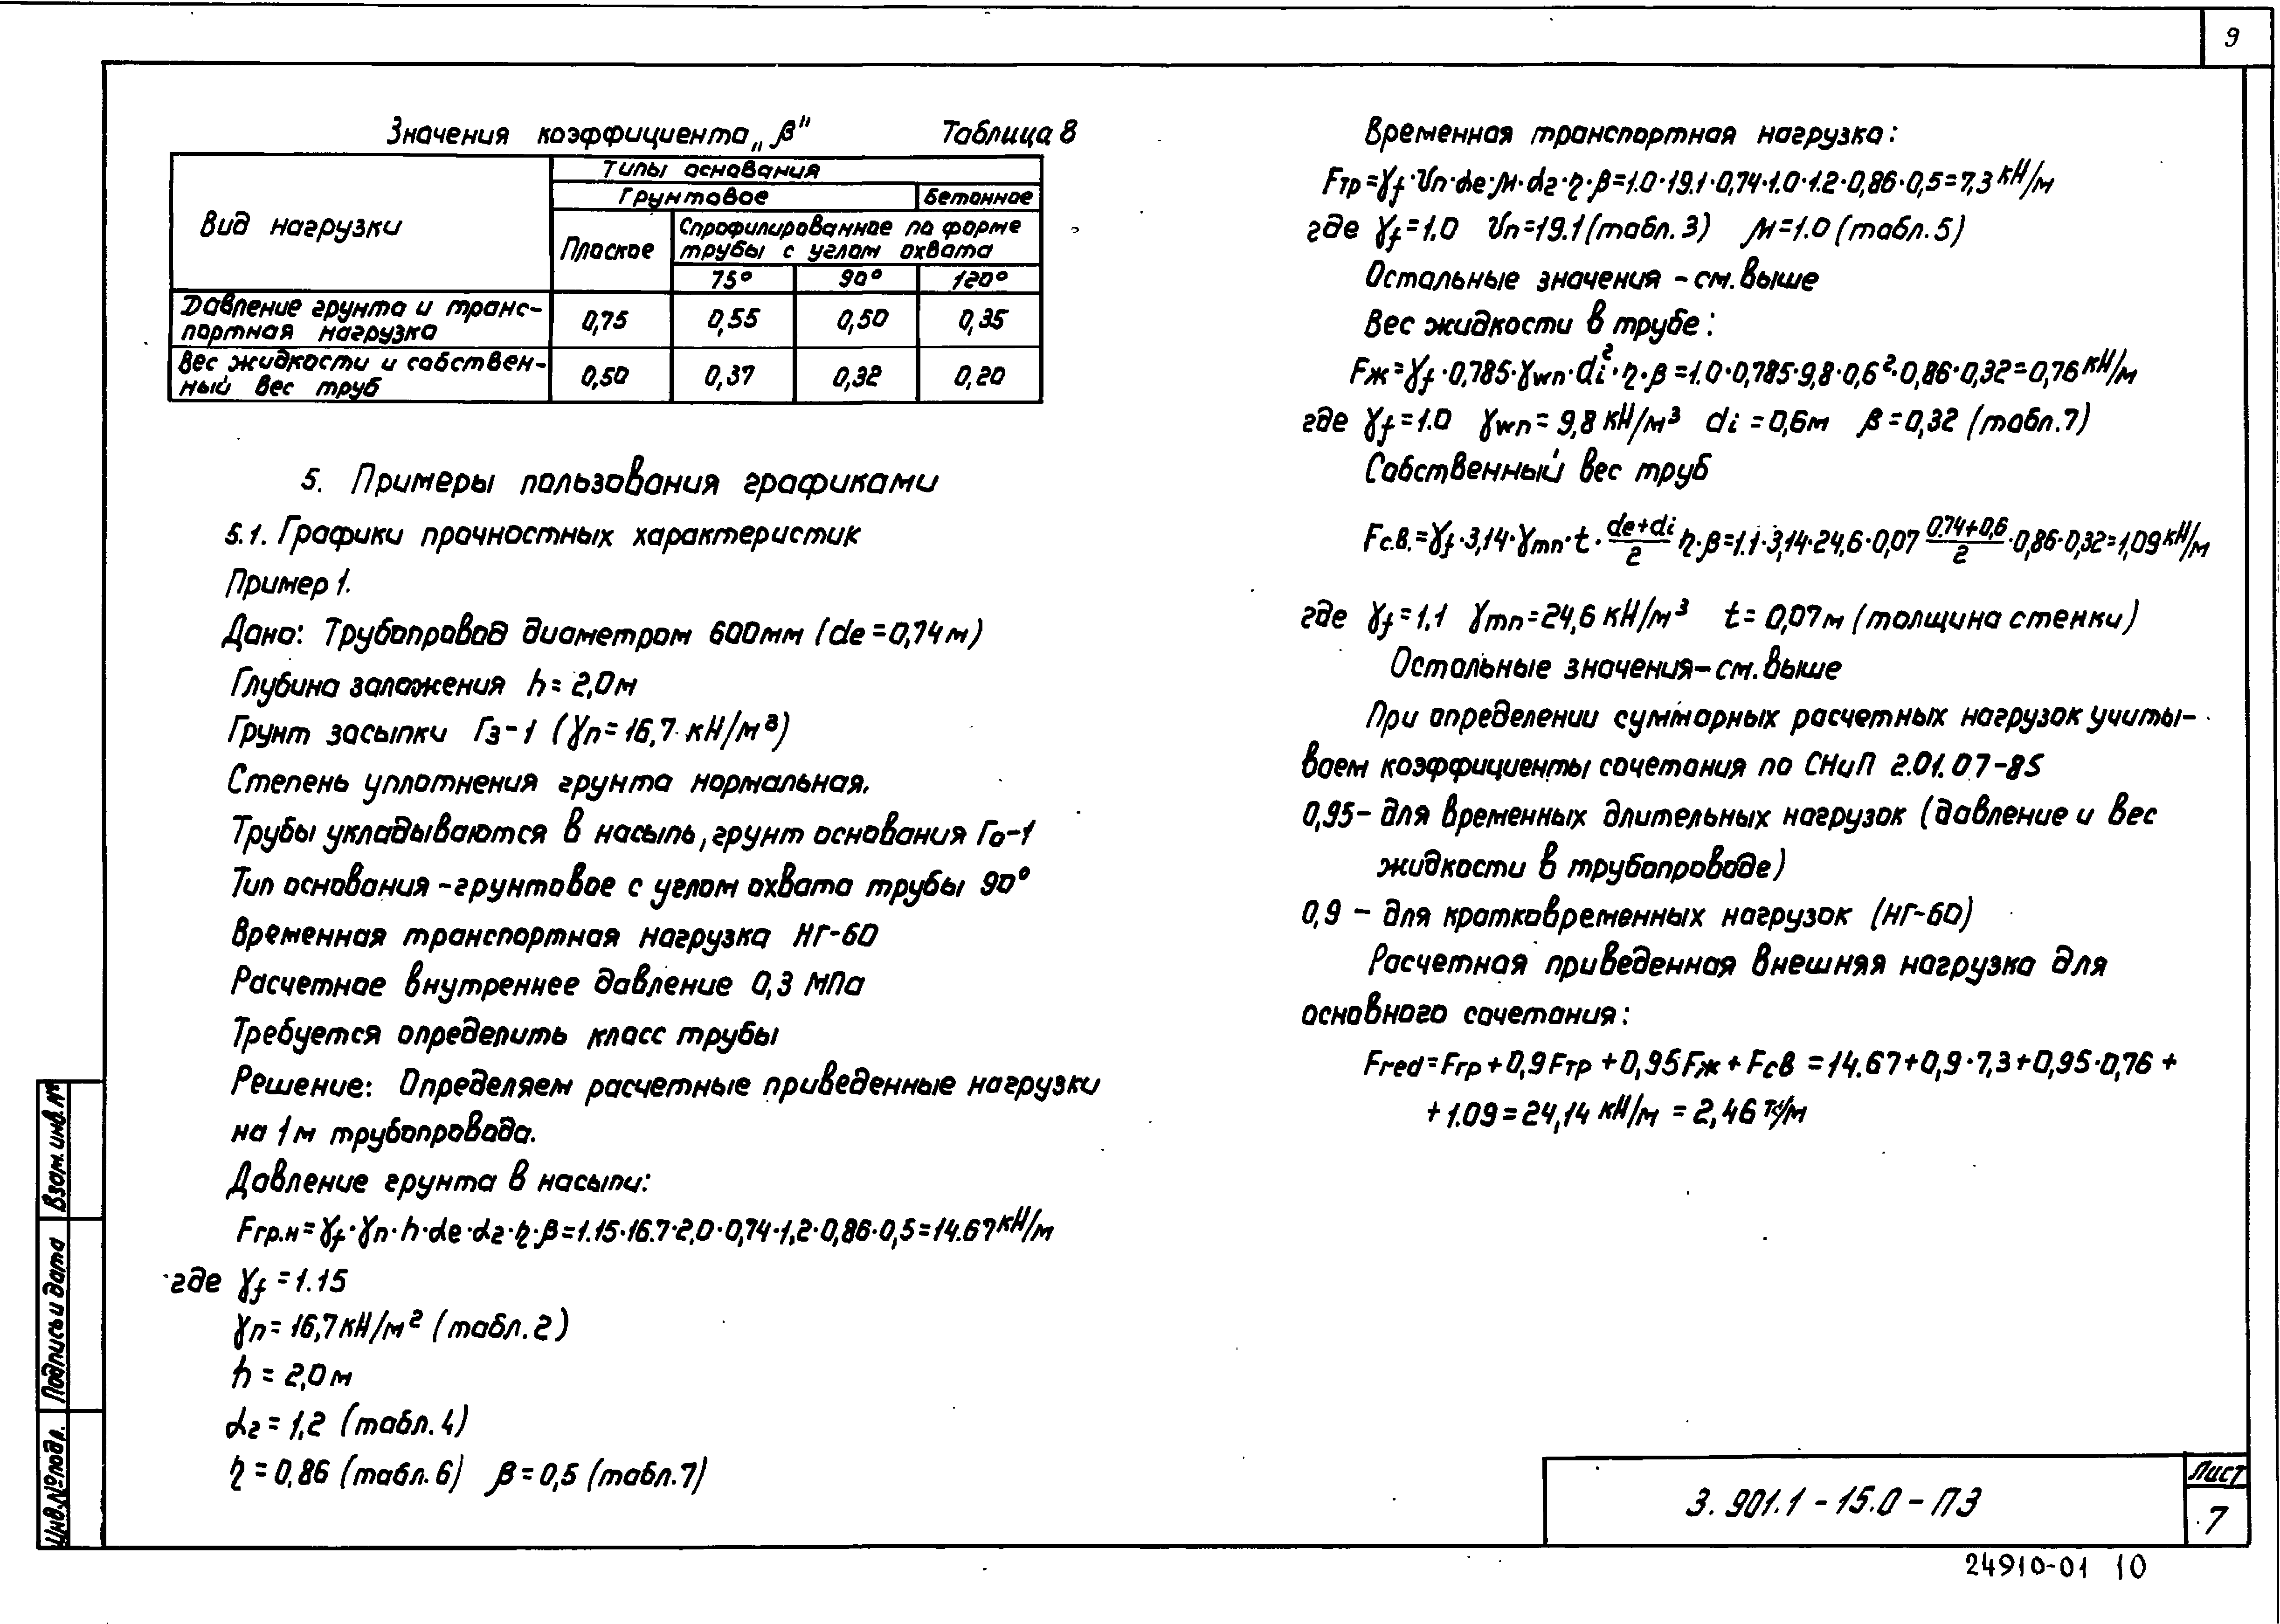 9
Значения коэффициента „β" Таблица 8
Вид нагрузки
Типы основания
Грунтовое Бетонное
Плоское
Спрофилированное по форме
трубы с углом охвата
75° 90° 120°
Давление грунта и транс-
портная нагрузка 0,75 0,55 0,50 0,35
Вес жидкости и собствен-
ный вес труб 0,50 0,37 0,32 0,20
5. Примеры пользования графиками
5.1. Графики прочностных характеристик
Пример 1.
Дано: Трубопровод диаметром 600мм (de=0,74м)
Глубина заложения h=2,0м
Грунт засыпки Гз-1 (γn=16,7 кН/м³)
Степень уплотнения грунта нормальная.
Трубы укладываются в насыпь, грунт основания Го-1
Тип основания - грунтовое с углом охвата трубы 90°
Временная транспортная нагрузка НГ-60
Расчетное внутреннее давление 0,3 МПа
Требуется определить класс трубы
Решение: Определяем расчетные приведенные нагрузки
на 1м трубопровода.
Давление грунта в насыпи:
Fгр.н=γf·γn·h·de·αг·η·β=1.15·16.7·2,0·0,74·1,2·0,86·0,5=14.67 кН/м
где γf=1.15
γn=16,7кН/м² (табл.2)
h=2,0м
αг=1,2 (табл.4)
η=0,86 (табл.6) β=0,5 (табл.7)
Временная транспортная нагрузка:
Fтр=γf·υn·de·μ·αг·η·β=1.0·19.1·0,74·1.0·1.2·0,86·0,5=7,3 кН/м
где γf=1.0 υn=19.1 (табл.3) μ=1.0 (табл.5)
Остальные значения - см. выше
Вес жидкости в трубе:
Fж=γf·0,785·γwn·di²·η·β=1.0·0,785·9,8·0,6²·0,86·0,32=0,76 кН/м
где γf=1.0 γwn=9,8 кН/м³ di=0,6м β=0,32 (табл.7)
Собственный вес труб
Fс.в.=γf·3,14·γmn·t·(de+di)/2 η·β=1.1·3,14·24,6·0,07 (0.74+0,6)/2·0,86·0,32=1,09 кН/м
где γf=1,1 γmn=24,6 кН/м³ t=0,07м (толщина стенки)
Остальные значения - см. выше
При определении суммарных расчетных нагрузок учиты-
ваем коэффициенты сочетания по СНиП 2.01.07-85
0,95 - для временных длительных нагрузок (давление и вес
жидкости в трубопроводе)
0,9 - для кратковременных нагрузок (НГ-60)
Расчетная приведенная внешняя нагрузка для
основного сочетания:
Fred=Fгр+0,9Fтр+0,95Fж+Fсв=14.67+0,9·7,3+0,95·0,76+
+1.09=24,14 кН/м=2,46 т/м
Взам. инв. №
Подпись и дата
Инв. № подл.
3.901.1-15.0-ПЗ
Лист
7
24910-01 10